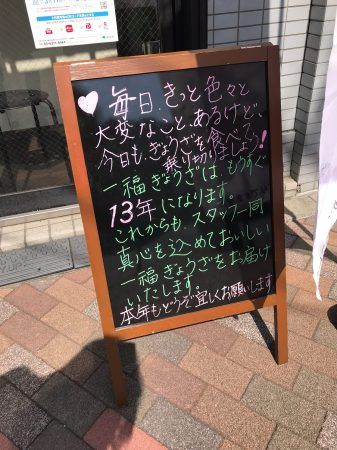 毎日、きっと色々と
大変なこと、あるけど、
今日も、ぎょうざを食べて、
乗り切りましょう!
一福ぎょうざは、もうすぐ
13年になります。
これからも、スタッフ一同
真心を込めておいしい
一福ぎょうざをお届け
いたします。
本年もどうぞ宜しくお願いします